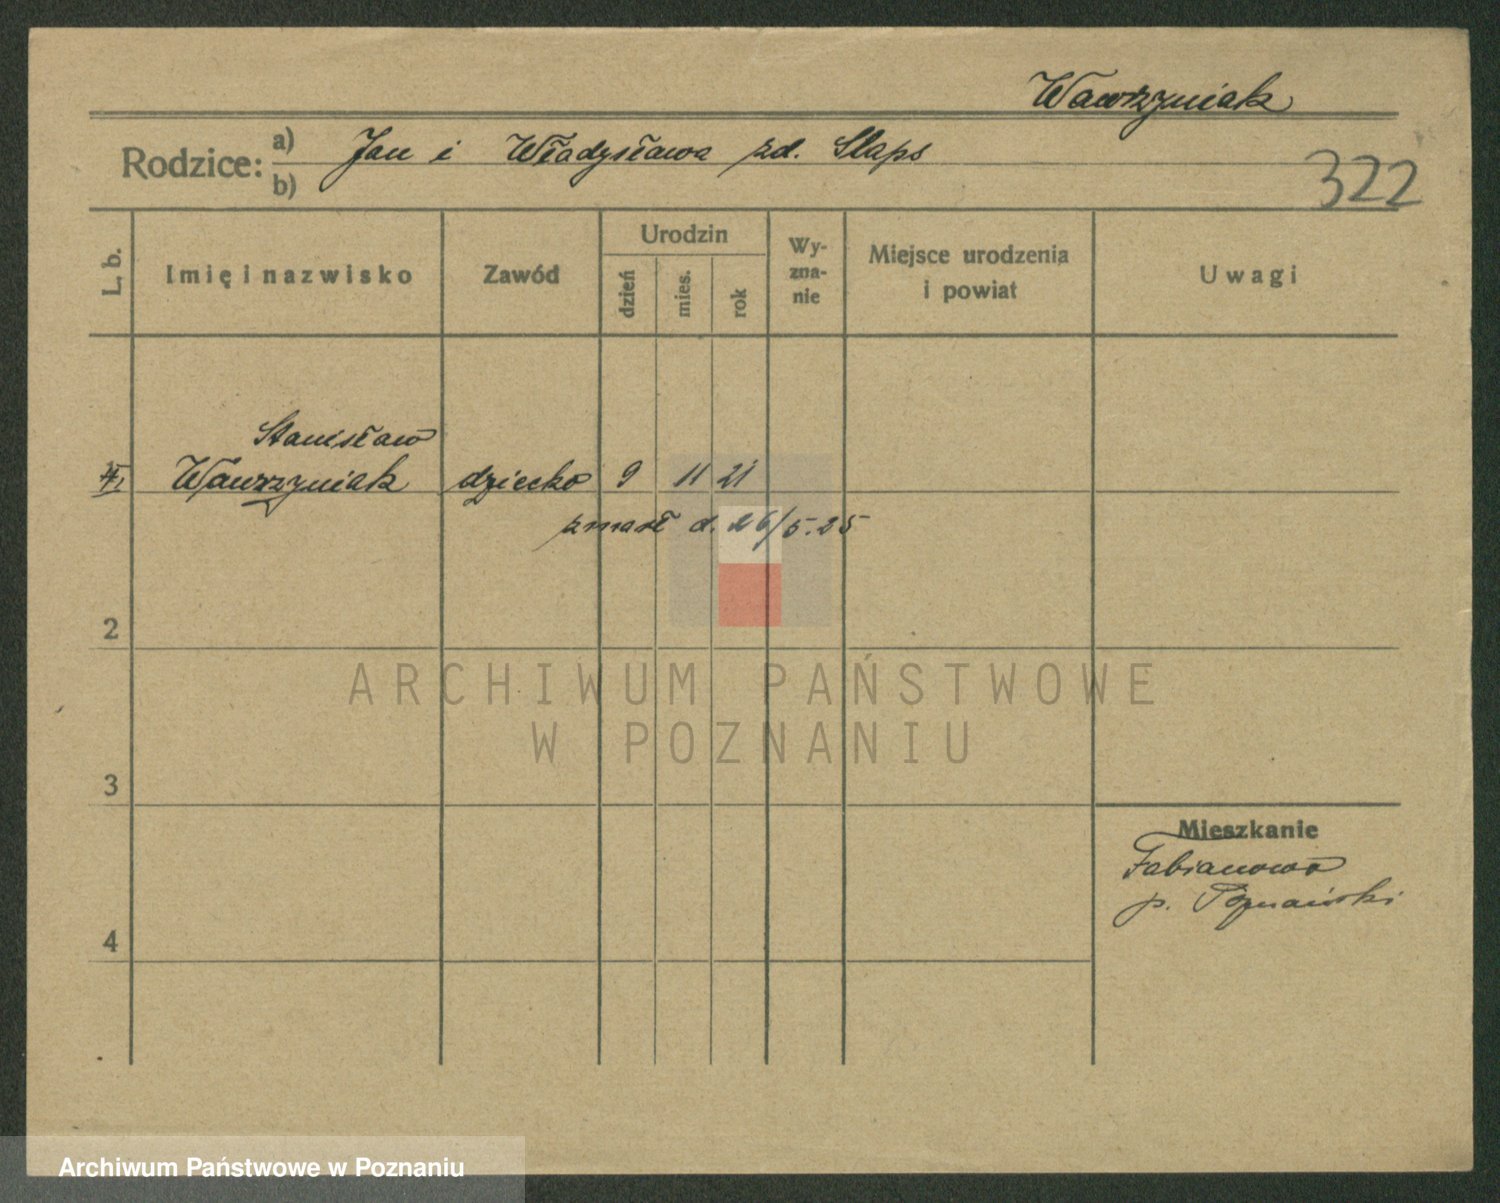 Wawrzyniak
Rodzice: a) Jan i Władysława zd. Slaps
b)
322
L. b.
Imię i nazwisko
Zawód
Urodzin
dzień
mies.
rok
Wy-
zna-
nie
Miejsce urodzenia
i powiat
Uwagi
Stanisław
1 Wawrzyniak dziecko 9 11 21
zmarł d. 26/5.25
2
ARCHIWUM PAŃSTWOWE
W POZNANIU
3
Mieszkanie
Fabianowo
p. Poznański
4
Archiwum Państwowe w Poznaniu